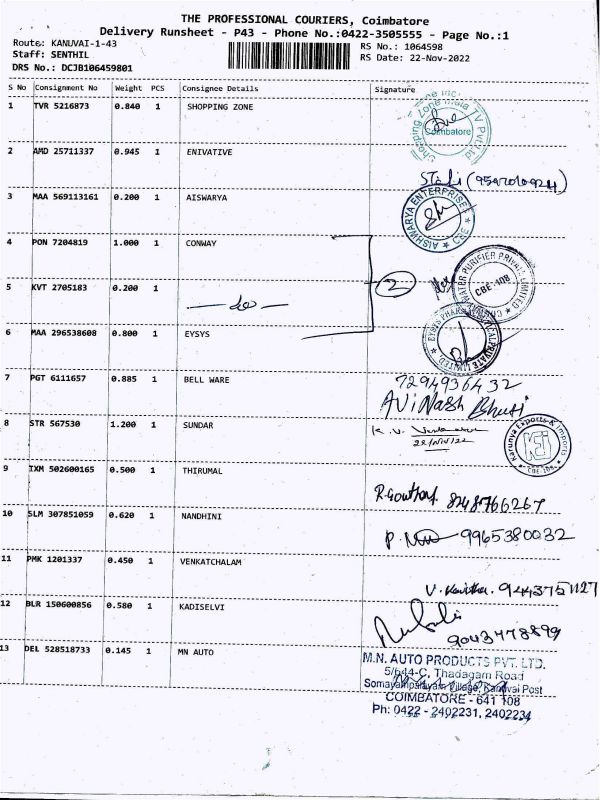 THE PROFESSIONAL COURIERS, Coimbatore
Delivery Runsheet - P43 - Phone No.:0422-3505555 - Page No.:1
Route: KANUVAI-1-43
Staff: SENTHIL
DRS No.: DCJB106459801
RS No.: 1064598
RS Date: 22-Nov-2022
S No Consignment No Weight PCS Consignee Details Signature
1 TVR 5216873 0.840 1 SHOPPING ZONE
Shopping Zone India TV Pvt Ltd
Coimbatore
2 AMD 25711337 0.945 1 ENIVATIVE
3 MAA 569113161 0.200 1 AISWARYA
AISHWARYA ENTERPRISE ★ CBE ★
4 PON 7204819 1.000 1 CONWAY
WATER PURIFIER PRIVATE LIMITED
CBE-108
5 KVT 2705183 0.200 1
2
6 MAA 296538608 0.800 1 EYSYS
PRIVATE LIMITED
7 PGT 6111657 0.885 1 BELL WARE
7294936432
AViNash
8 STR 567530 1.200 1 SUNDAR
K. V.
Karunya Exports & Imports
KEI
CBE
9 IXM 502600165 0.500 1 THIRUMAL
8248766267
10 SLM 307851059 0.620 1 NANDHINI
9965380032
11 PMK 1201337 0.450 1 VENKATCHALAM
12 BLR 150600856 0.580 1 KADISELVI
9043478899
13 DEL 528518733 0.145 1 MN AUTO
M.N. AUTO PRODUCTS PVT. LTD.
5/644-C, Thadagam Road
Somayampalayam Village, Kanuvai Post
COIMBATORE - 641 108
Ph: 0422 - 2402231, 2402234